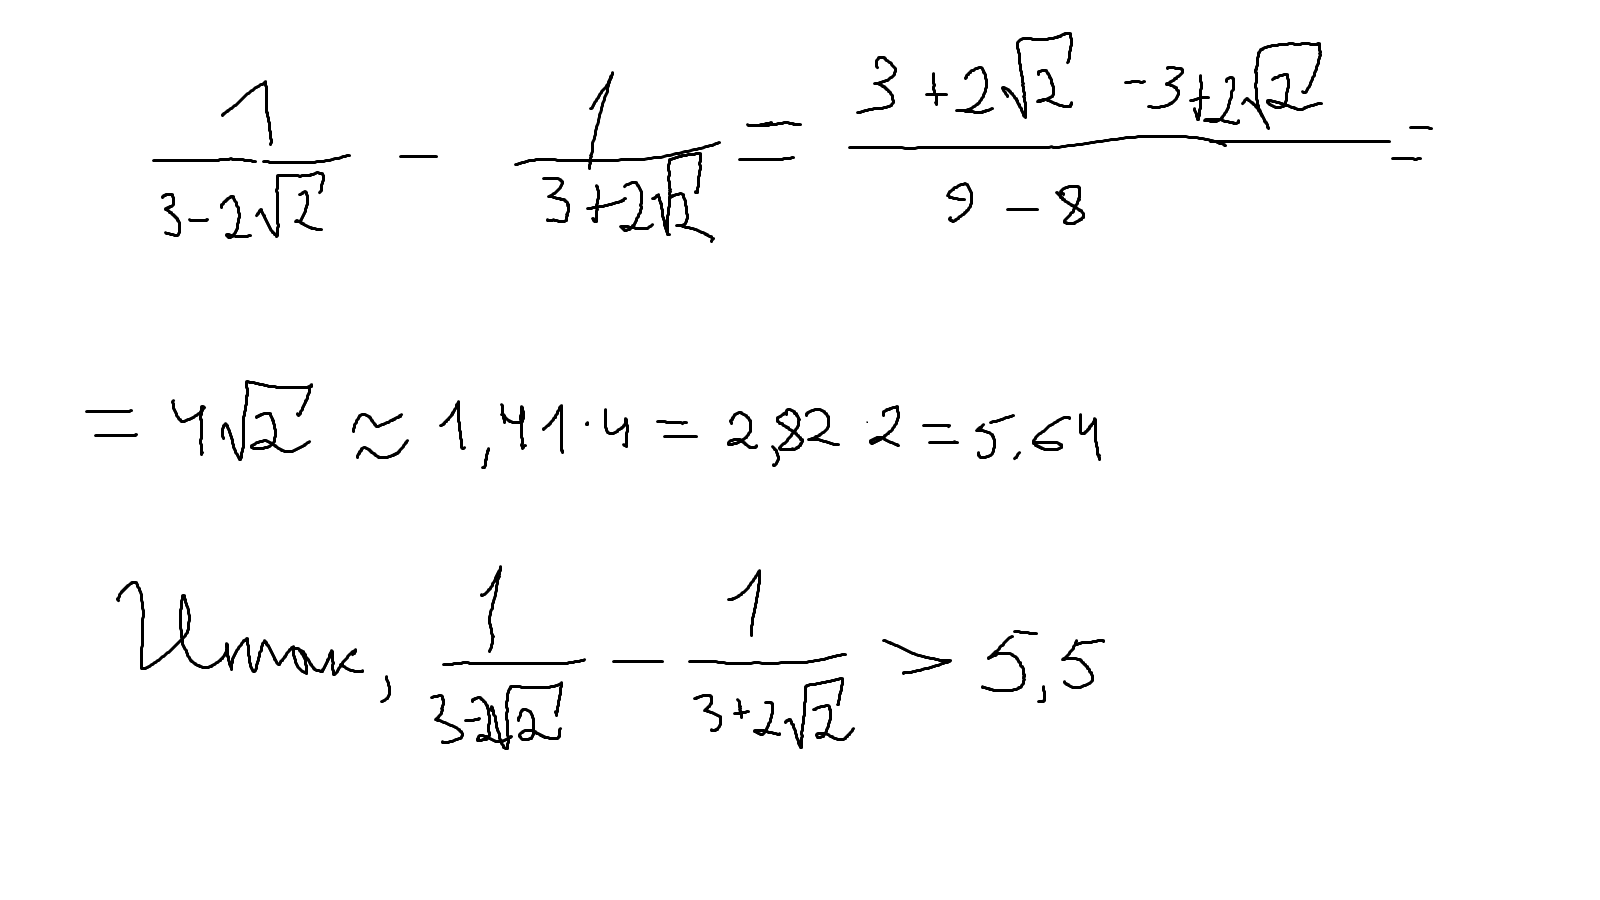 1/(3-2√2) - 1/(3+2√2) = (3+2√2 -3+2√2)/(9-8) =
= 4√2 ≈ 1,41·4 = 2,82·2 = 5,64
Итак, 1/(3-2√2) - 1/(3+2√2) > 5,5